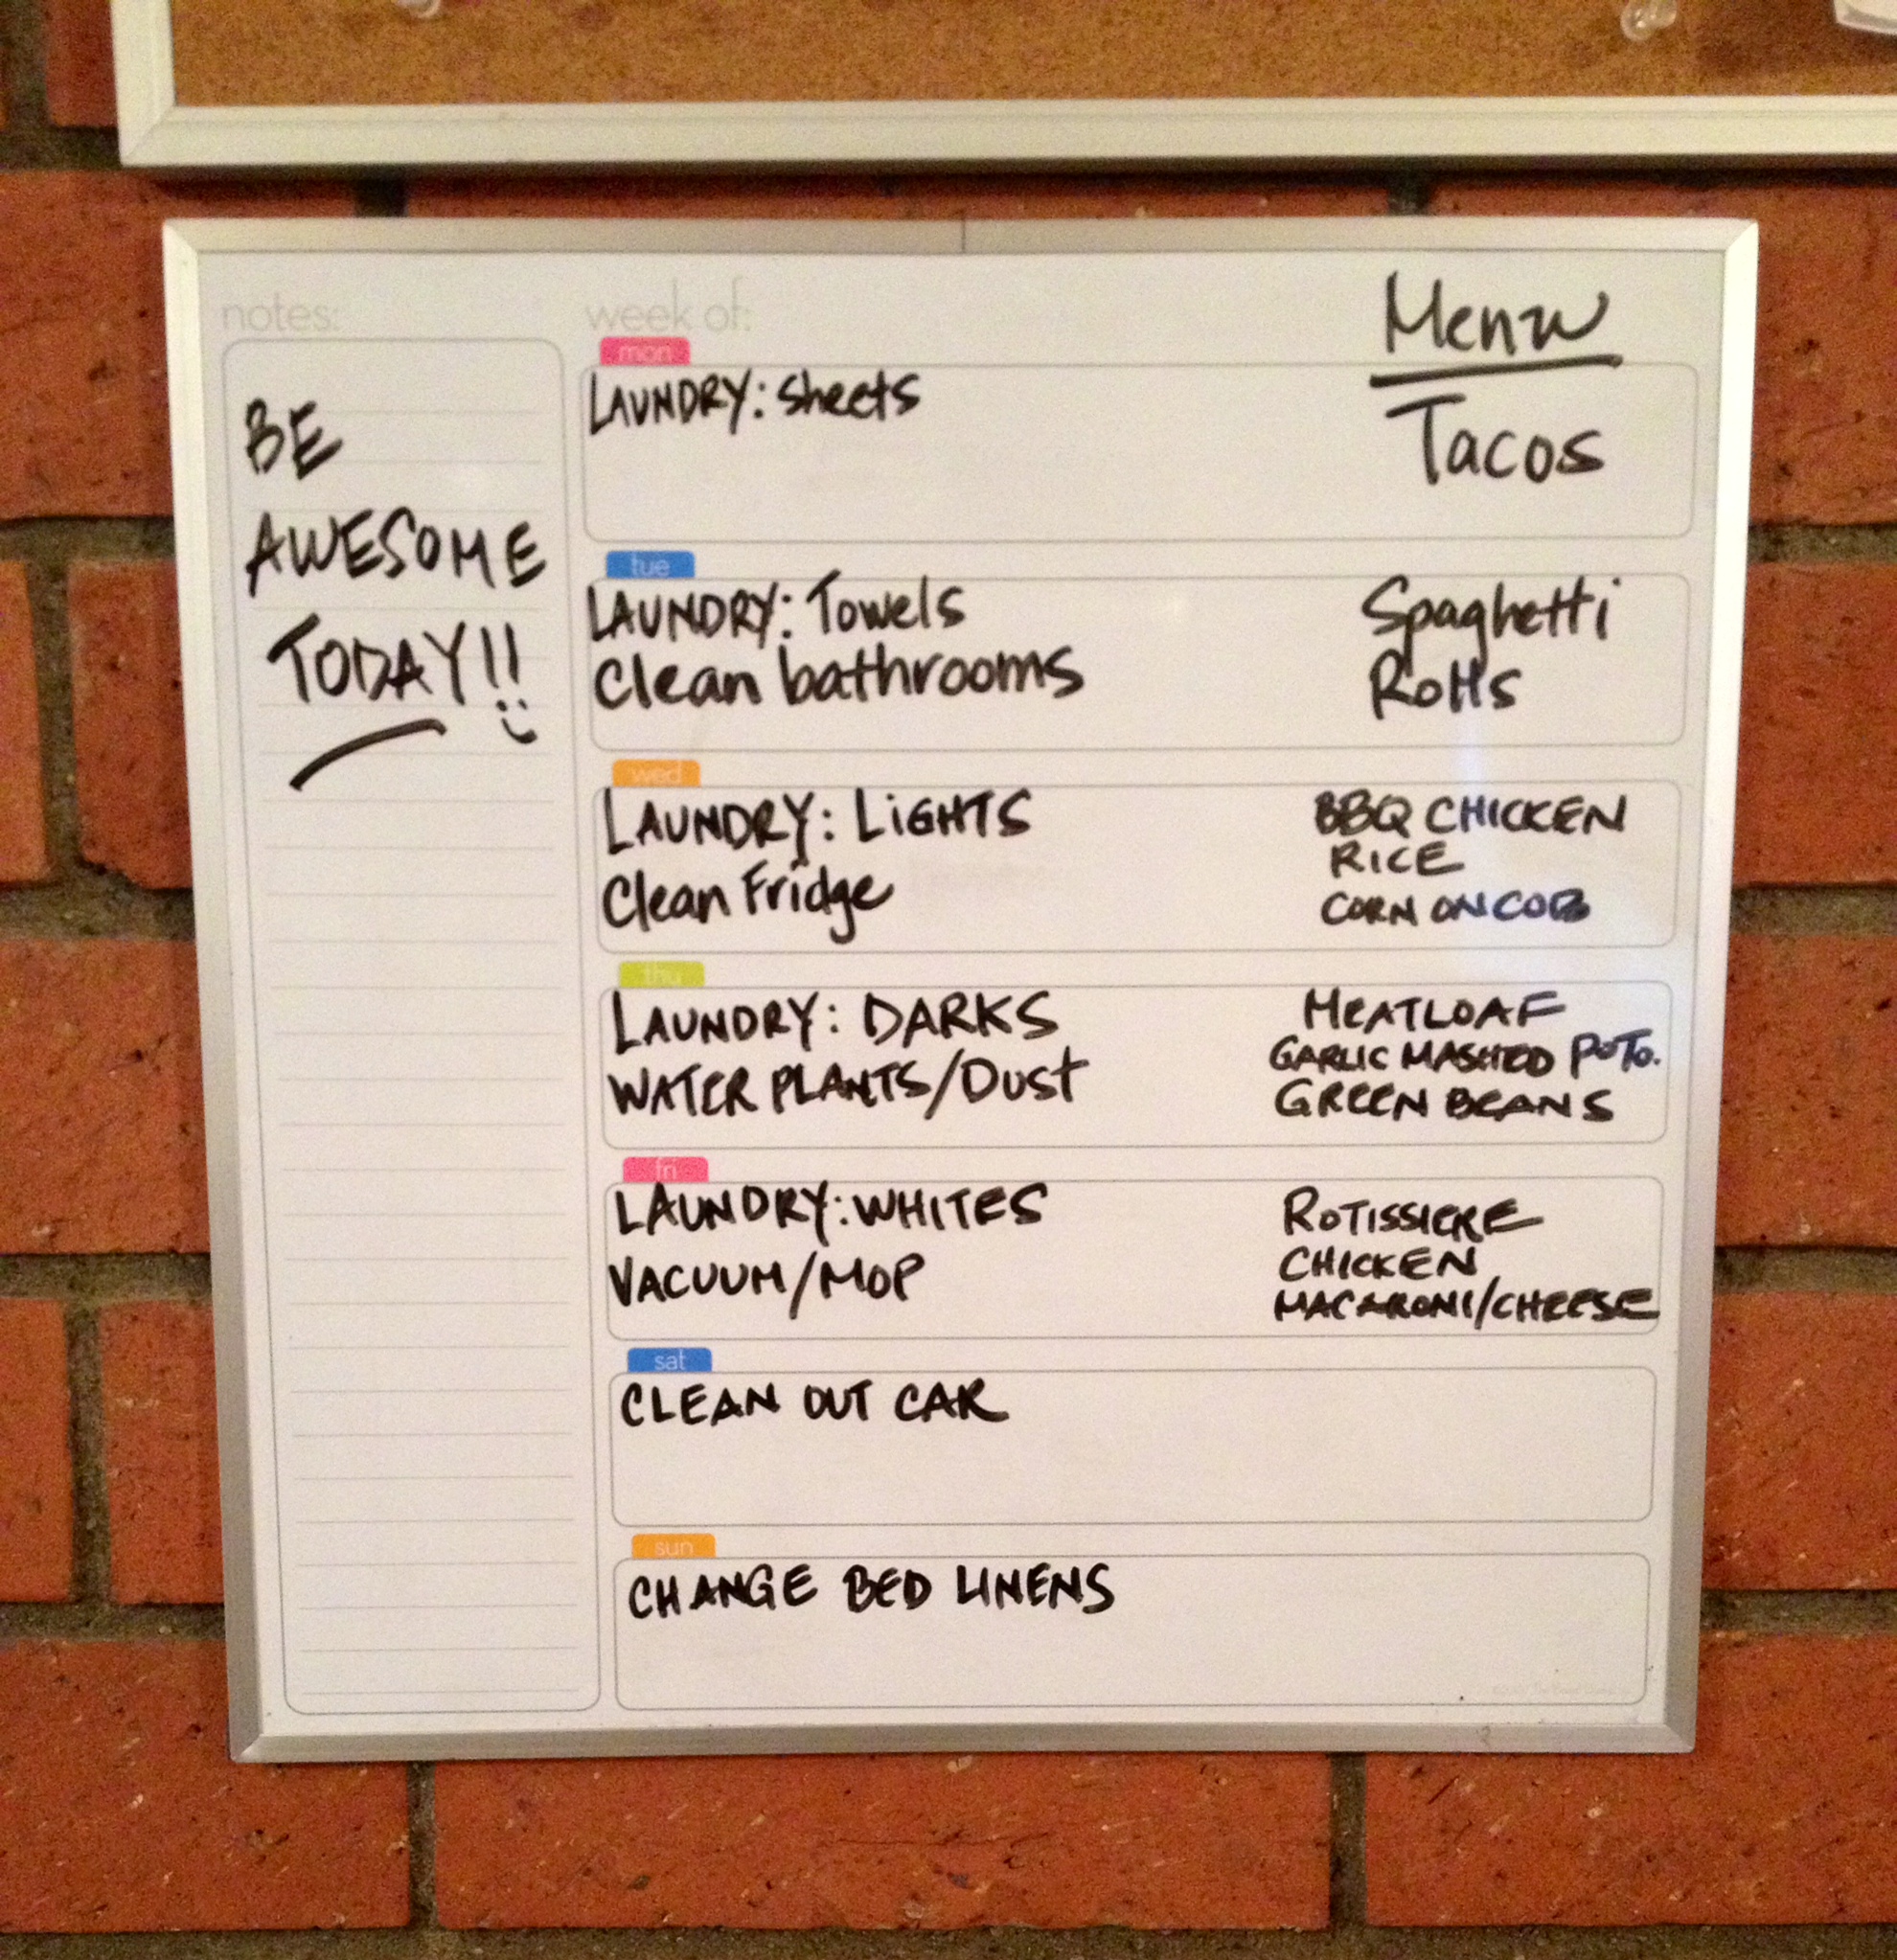 notes:
BE
AWESOME
TODAY!!
week of:
Menu
mon
LAUNDRY: sheets
Tacos
tue
LAUNDRY: Towels
Clean bathrooms
Spaghetti
Rolls
wed
LAUNDRY: LiGHTS
Clean Fridge
BBQ CHICKEN
RICE
CORN ON COB
thu
LAUNDRY: DARKS
WATER PLANTS/Dust
MEATLOAF
GARLIC MASHED POTO.
GREEN BEANS
fri
LAUNDRY: WHITES
VACUUM/MOP
ROTISSIERE
CHICKEN
MACARONI/CHEESE
sat
CLEAN OUT CAR
sun
CHANGE BED LINENS